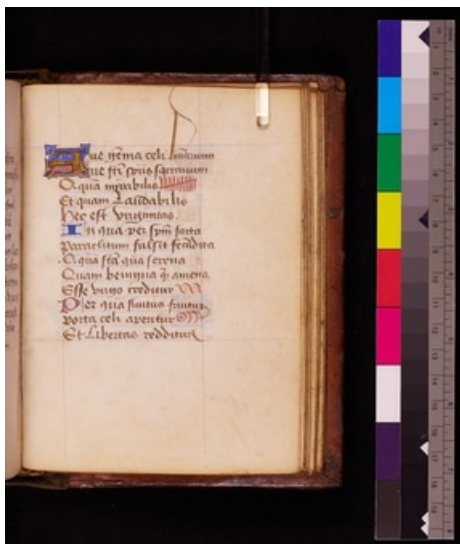 Aue gēma celi luminarium
Aue sctī spūs sacrarium
O qua mirabilis
Et quam Laudabilis
Hec est virginitas
In qua per spm̄ facta
Paraclitum fulsit fecūdita
O qua sctā qua serena
Quam benigna q̄ amena
Esse virgo creditur
Per qua seruitus finitur
Porta celi aperitur
Et Libertas redditur